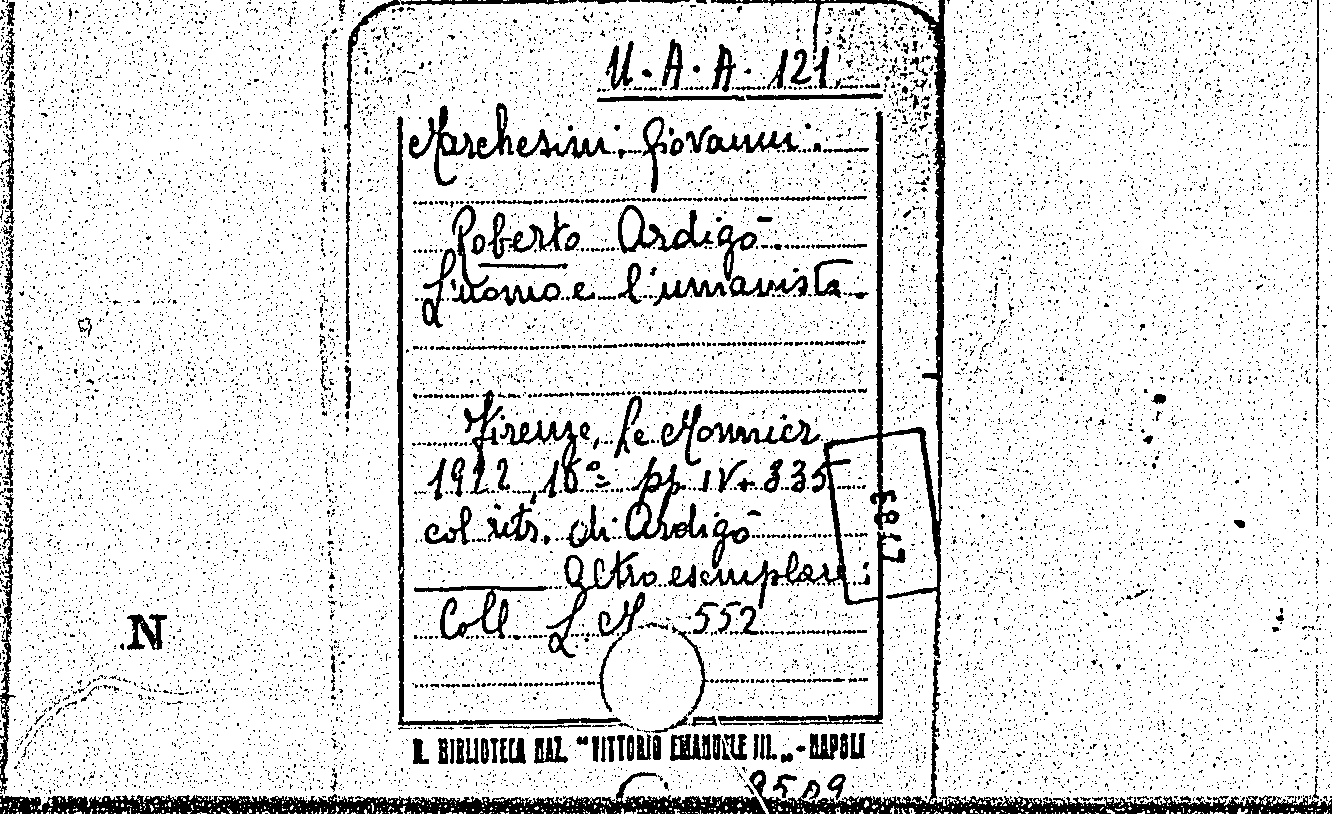 U. A. A. 121
Marchesini, Giovanni.
Roberto Ardigò.
L'uomo e l'umanista.
Firenze, Le Monnier
1922, 18° pp. IV + 335
col ritr. di Ardigò
Altro esemplare:
Coll. L. N. 552
N
R. BIBLIOTECA NAZ. "VITTORIO EMANUELE III." - NAPOLI